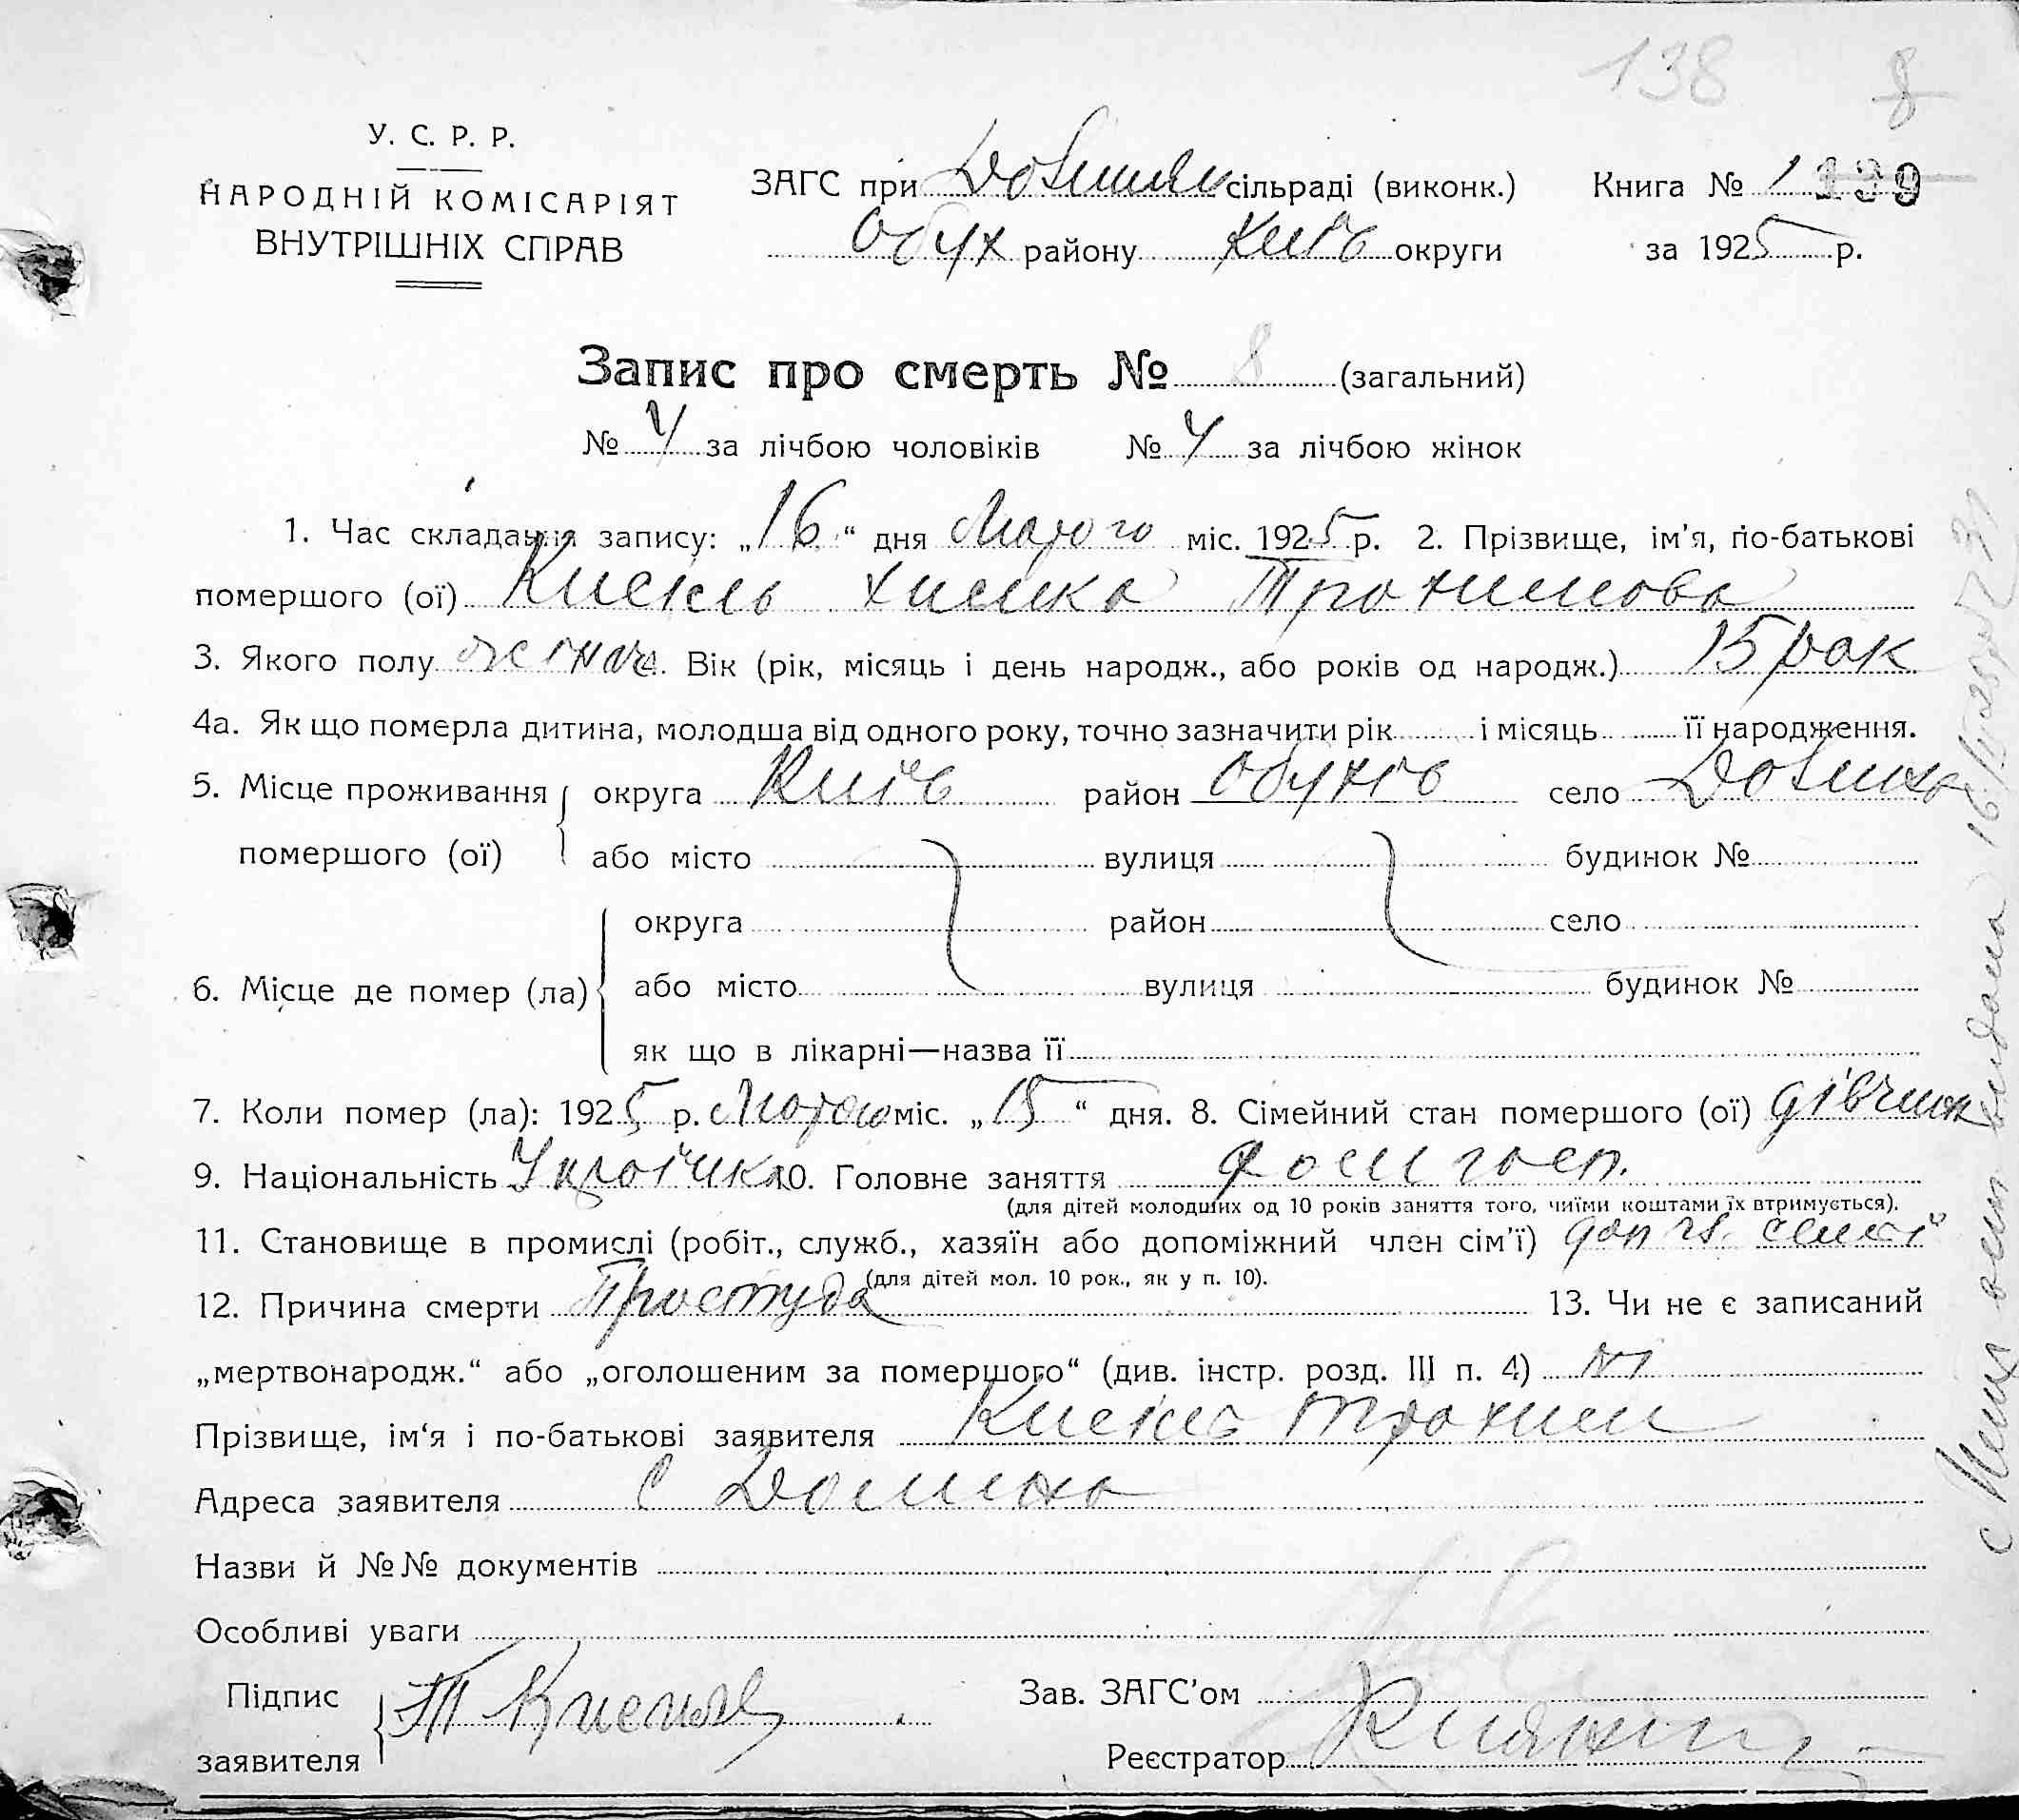 138 8
У. С. Р. Р.
НАРОДНІЙ КОМІСАРІЯТ
ВНУТРІШНІХ СПРАВ
ЗАГС при сільраді (виконк.) Книга № 1 139
Обух району Київ округи за 1925 р.
Запис про смерть № 8 (загальний)
№ 4 за лічбою чоловіків № 4 за лічбою жінок
1. Час складання запису: „16“ дня Лютого міс. 1925 р. 2. Прізвище, ім’я, по-батькові
помершого (ої) Кисіль Химка Трохимова
3. Якого полу жіноч. Вік (рік, місяць і день народж., або років од народж.) 15 рок
4а. Як що померла дитина, молодша від одного року, точно зазначити рік і місяць її народження.
5. Місце проживання округа Київ район Обухів село Долина
помершого (ої) або місто вулиця будинок №
округа район село
6. Місце де помер (ла) або місто вулиця будинок №
як що в лікарні—назва її
7. Коли помер (ла): 1925 р. Лютого міс. „15“ дня. 8. Сімейний стан помершого (ої) дівчина
9. Національність Українка 10. Головне заняття госп.
(для дітей молодших од 10 років заняття того, чиїми коштами їх втримується).
11. Становище в промислі (робіт., служб., хазяїн або допоміжний член сім’ї) доп чл. семї
(для дітей мол. 10 рок., як у п. 10).
12. Причина смерти Простуда 13. Чи не є записаний
„мертвонародж.“ або „оголошеним за помершого“ (див. інстр. розд. III п. 4) ні
Прізвище, ім‘я і по-батькові заявителя Кисіль Трохим
Адреса заявителя с Долина
Назви й №№ документів
Особливі уваги
Підпис Т Кисіль Зав. ЗАГС’ом
заявителя Реєстратор